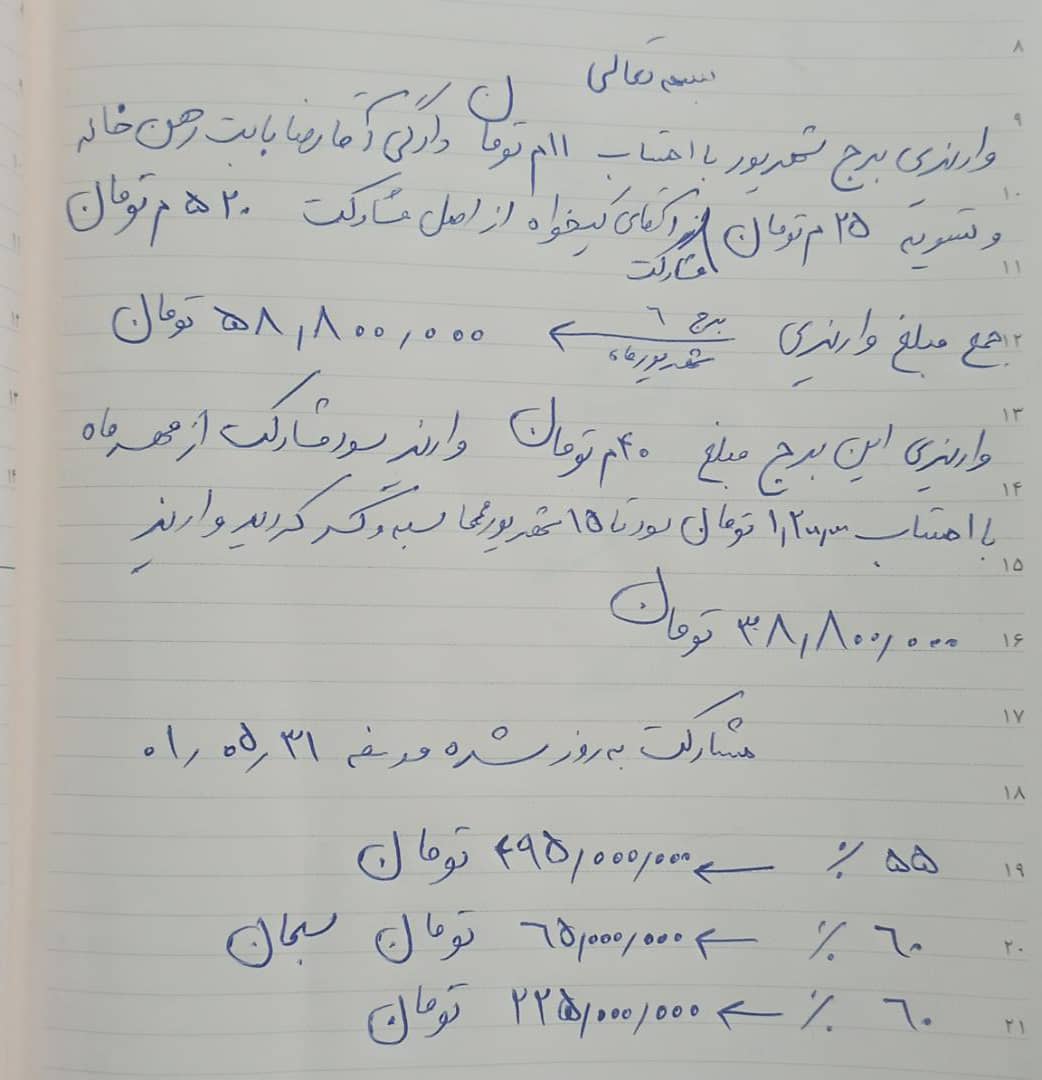 ۸
بسمه تعالی
۹
واریزی برج شهریور با احتساب ۱۱م تومان وارلی آقا رضا بابت رهن خانه
۱۰
و تسویه ۲۵ م تومان آقای کیخواه از اصل مشارکت ۵۲۰ م تومان
مشارکت
۱۱
برج ۶
۱۲ جمع مبلغ واریزی ← ۵۸,۸۰۰,۰۰۰ تومان
شهریورماه
۱۳
واریزی این برج مبلغ ۴۰م تومان واریز سود مشارکت از مهرماه
۱۴
با احتساب ۱,۲۰۰,۰۰۰ تومان سود تا ۱۵ شهریور محاسبه و کسر گردید واریز
۱۵
۳۸,۸۰۰,۰۰۰ تومان
۱۶
۱۷
مشارکت به روز شده مورخه ۰۱,۰۵,۳۱
۱۸
۵۵ ٪ ← ۴۹۵,۰۰۰,۰۰۰ تومان
۱۹
۶۰ ٪ ← ۶۵,۰۰۰,۰۰۰ تومان سبحان
۲۰
۶۰ ٪ ← ۲۲۵,۰۰۰,۰۰۰ تومان
۲۱